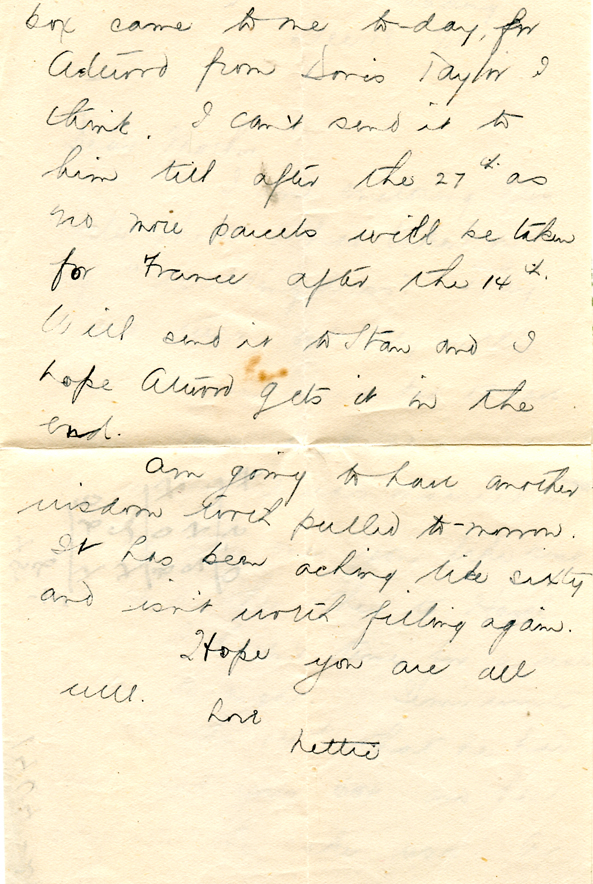 box came to me to-day, for
from Doris Taylor I
think. I can't send it to
him till after the 27th. as
no more parcels will be taken
for France after the 14th.
Will send it to Stan and I
hope gets it in the
end.
Am going to have another
wisdom tooth pulled to-morrow.
It has been aching like sixty
and isn't worth filling again.
Hope you are all
well.
Love
Lettie